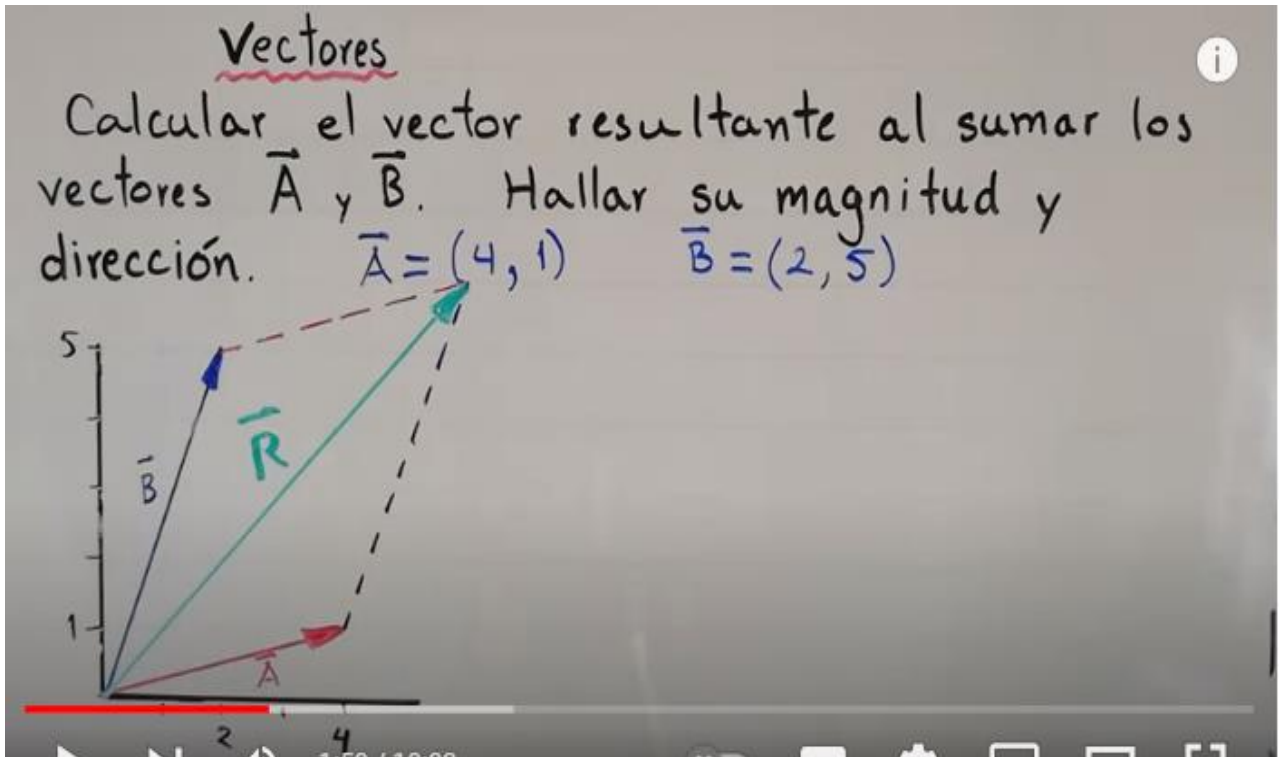 Vectores
Calcular el vector resultante al sumar los
vectores A y B. Hallar su magnitud y
dirección. A = (4, 1) B = (2, 5)
5
B
R
1
A
2 4